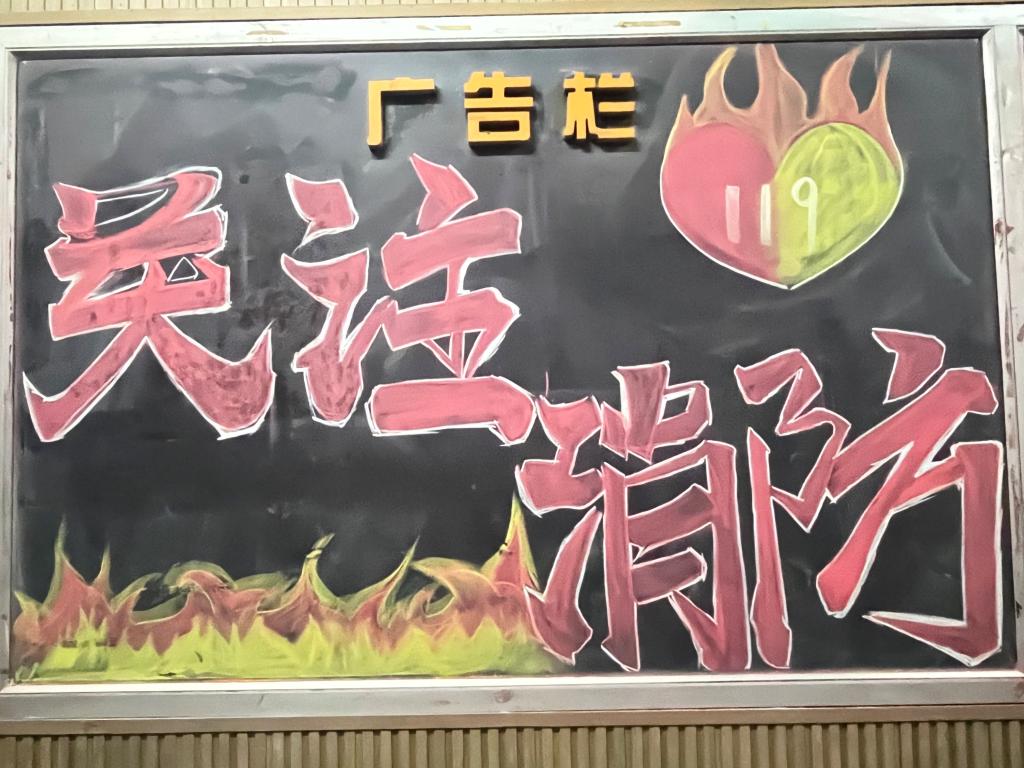 广告栏
119
关注
消防